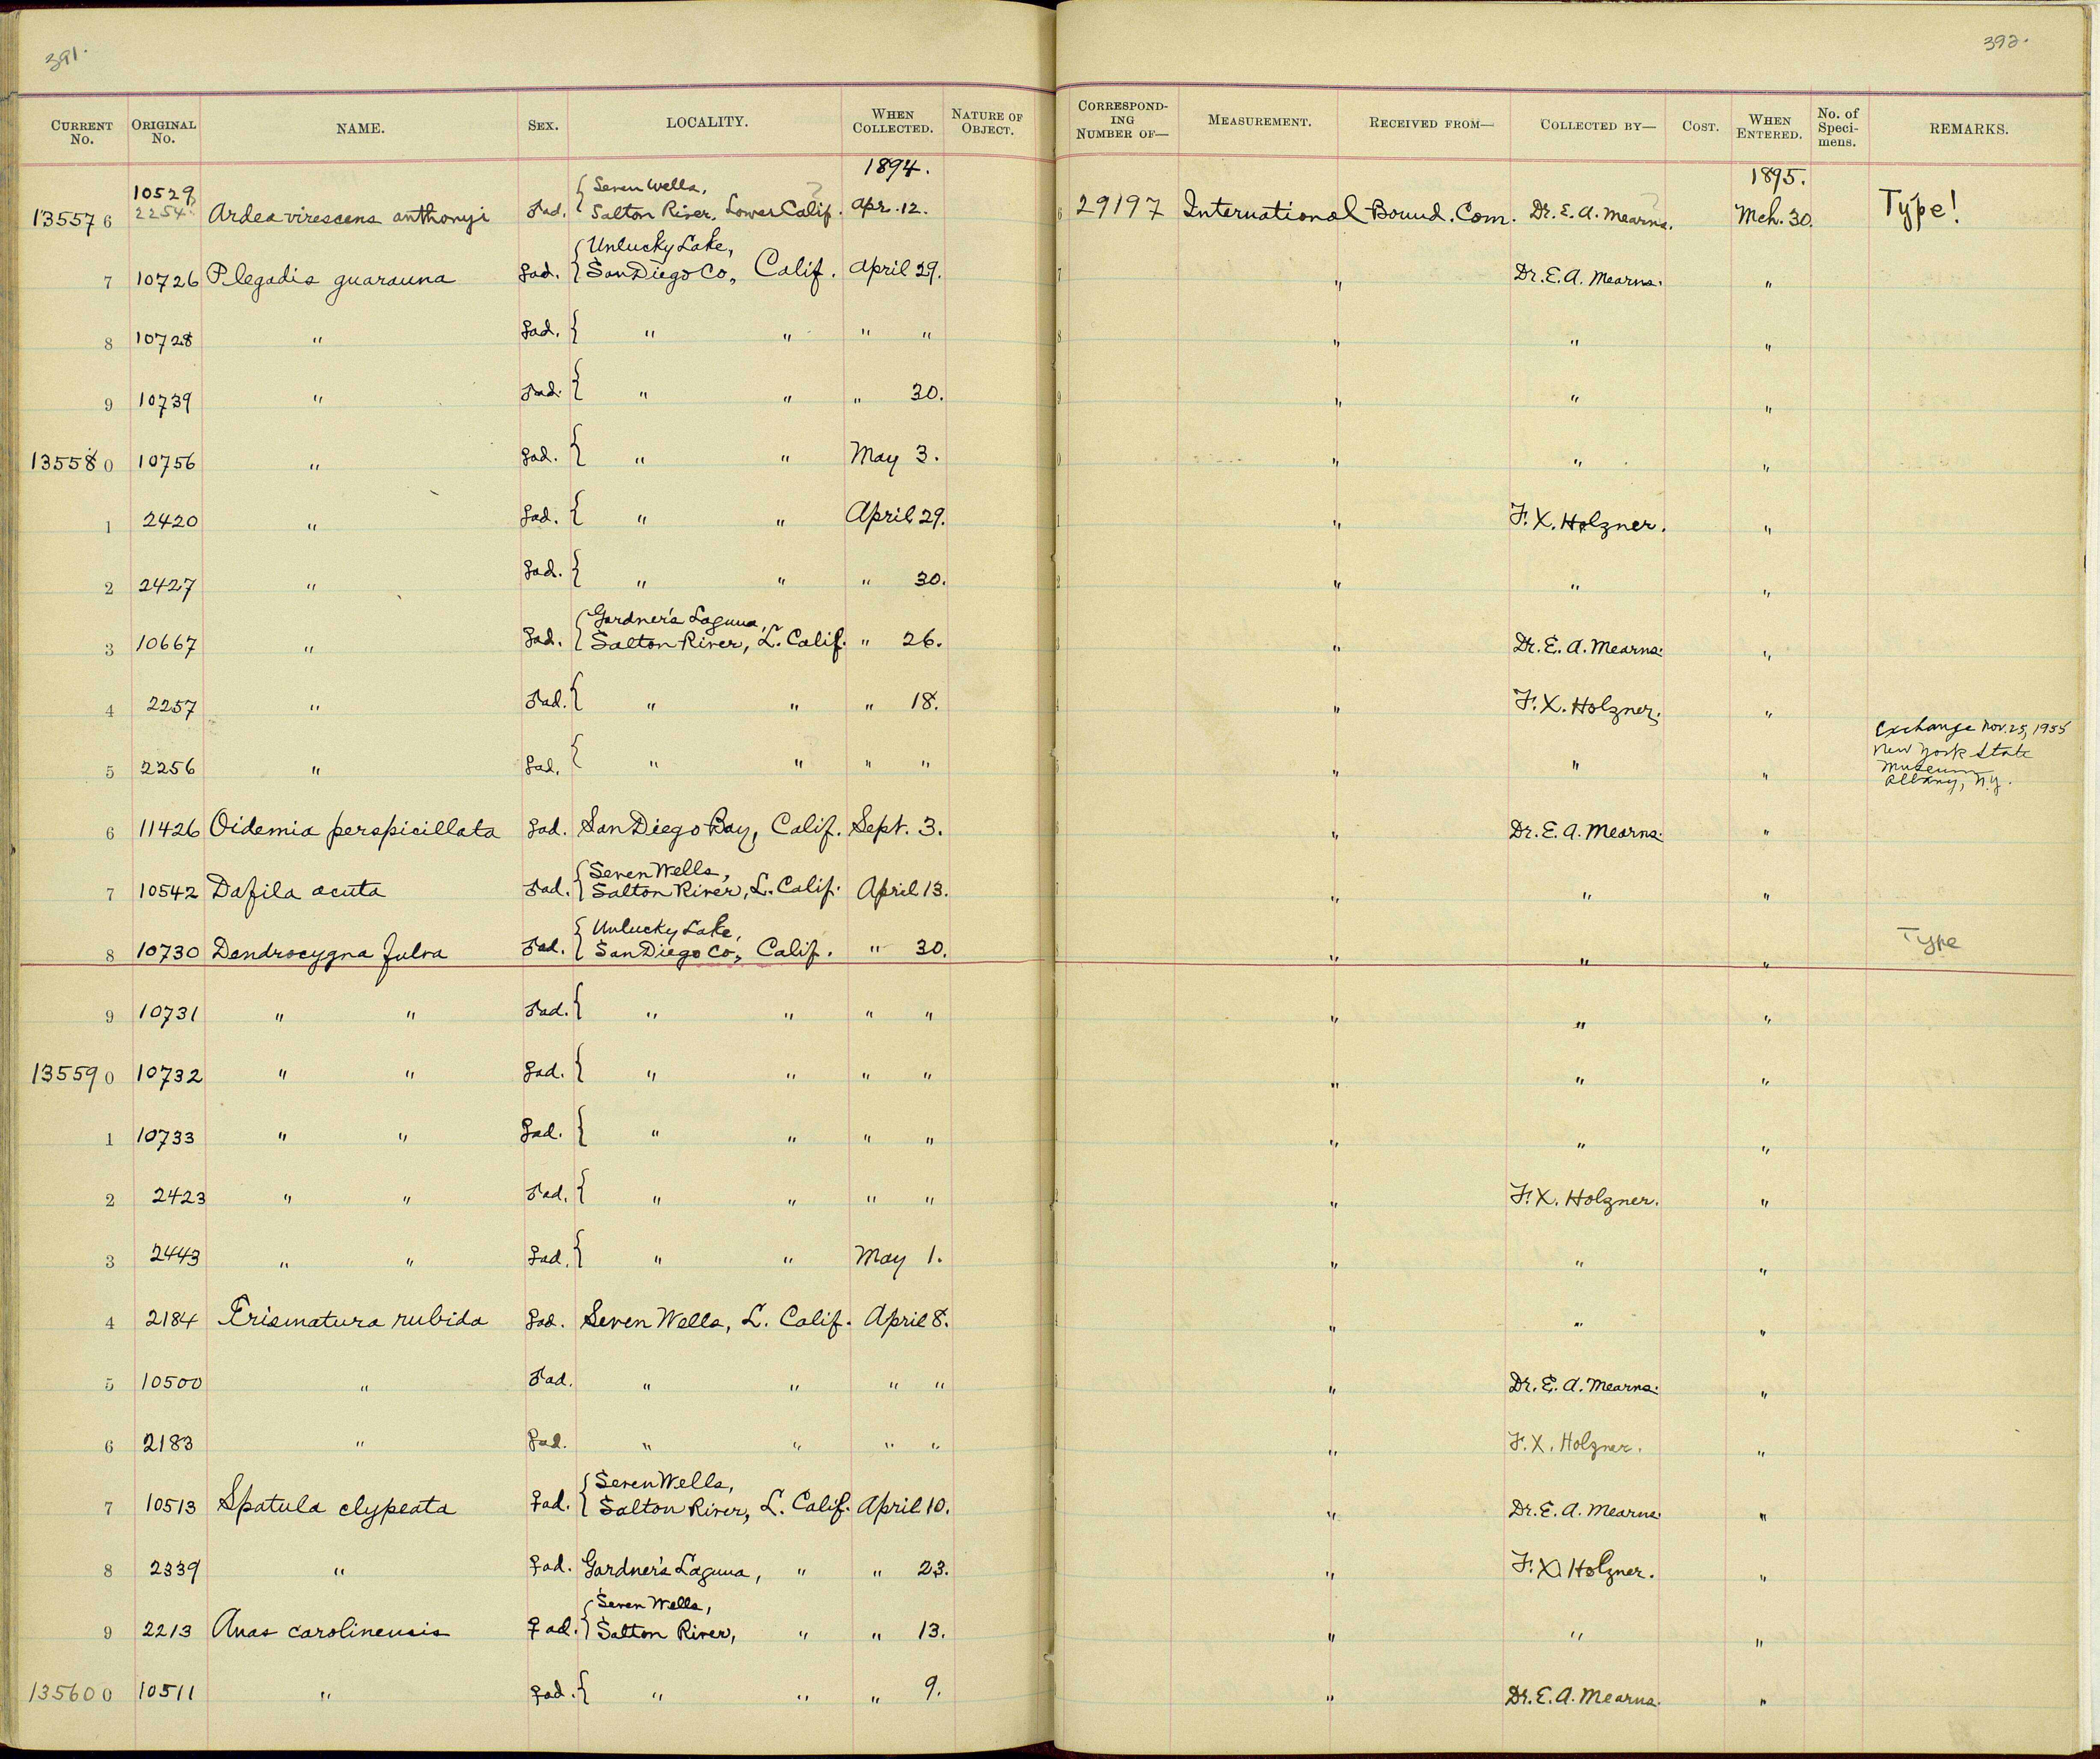 391.
392.
CURRENT No. ORIGINAL No. NAME. SEX. LOCALITY. WHEN COLLECTED. NATURE OF OBJECT. CORRESPONDING NUMBER OF— MEASUREMENT. RECEIVED FROM— COLLECTED BY— COST. WHEN ENTERED. No. of Specimens. REMARKS.
1894. 1895.
10529 Seven Wells,
13557 6 2254 Ardea virescens anthonyi ad. Salton River, Lower Calif. Apr. 12. 29197 International Bound. Com. Dr. E. A. Mearns. Mch. 30. Type!
Unlucky Lake,
7 10726 Plegadis guarauna ad. San Diego Co., Calif. April 29. " Dr. E. A. Mearns. "
8 10728 " ad. { " " " " " " "
9 10739 " ad. { " " " 30. " " "
13558 0 10756 " ad. { " " May 3. " " "
1 2420 " ad. { " " April 29. " F. X. Holzner. "
2 2427 " ad. { " " " 30. " " "
Gardner's Laguna,
3 10667 " ad. Salton River, L. Calif. " 26. " Dr. E. A. Mearns. "
4 2257 " ad. { " " " 18. " F. X. Holzner. "
5 2256 " ad. { " " " " " " " Exchange Nov. 25, 1955
New York State
Museum
Albany, N.Y.
6 11426 Oidemia perspicillata ad. San Diego Bay, Calif. Sept. 3. " Dr. E. A. Mearns. "
Seven Wells,
7 10542 Dafila acuta ad. Salton River, L. Calif. April 13. " " "
Unlucky Lake,
8 10730 Dendrocygna fulva ad. San Diego Co., Calif. " 30. " " " Type
9 10731 " " ad. { " " " " " " "
13559 0 10732 " " ad. { " " " " " " "
1 10733 " " ad. { " " " " " " "
2 2423 " " ad. { " " " " " F. X. Holzner. "
3 2443 " " ad. { " " May 1. " " "
4 2184 Erismatura rubida ad. Seven Wells, L. Calif. April 8. " " "
5 10500 " ad. " " " " " Dr. E. A. Mearns. "
6 2183 " ad. " " " " " F. X. Holzner. "
Seven Wells,
7 10513 Spatula clypeata ♀ ad. Salton River, L. Calif. April 10. " Dr. E. A. Mearns. "
8 2339 " ♀ ad. Gardner's Laguna, " " 23. " F. X. Holzner. "
Seven Wells,
9 2213 Anas carolinensis ♀ ad. Salton River, " " 13. " " "
13560 0 10511 " ♀ ad. { " " " 9. " Dr. E. A. Mearns. "